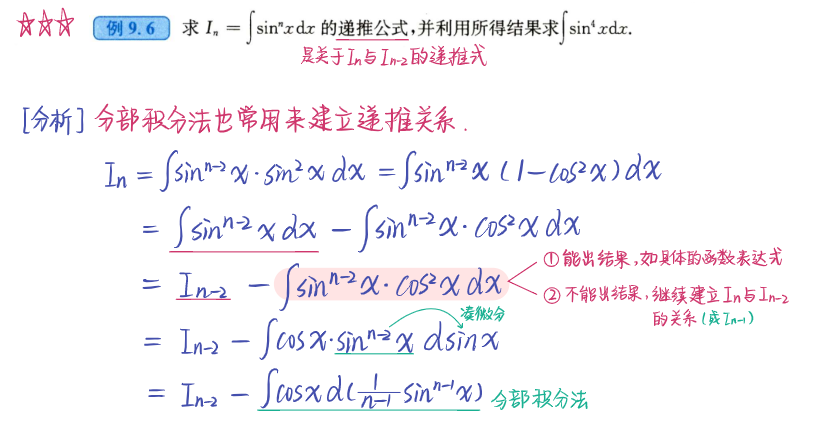 ☆☆☆ 例 9.6 求 Iₙ = ∫sinⁿxdx 的递推公式,并利用所得结果求∫sin⁴xdx.
是关于Iₙ与Iₙ₋₂的递推式
[分析] 分部积分法也常用来建立递推关系.
Iₙ = ∫sinⁿ⁻²x·sin²x dx = ∫sinⁿ⁻²x (1-cos²x)dx
= ∫sinⁿ⁻²x dx - ∫sinⁿ⁻²x·cos²x dx
= Iₙ₋₂ - ∫sinⁿ⁻²x·cos²x dx
①能出结果,如具体的函数表达式
②不能出结果,继续建立Iₙ与Iₙ₋₂
的关系(或Iₙ₋₁)
凑微分
= Iₙ₋₂ - ∫cosx·sinⁿ⁻²x dsinx
= Iₙ₋₂ - ∫cosx d(1/(n-1) sinⁿ⁻¹x) 分部积分法